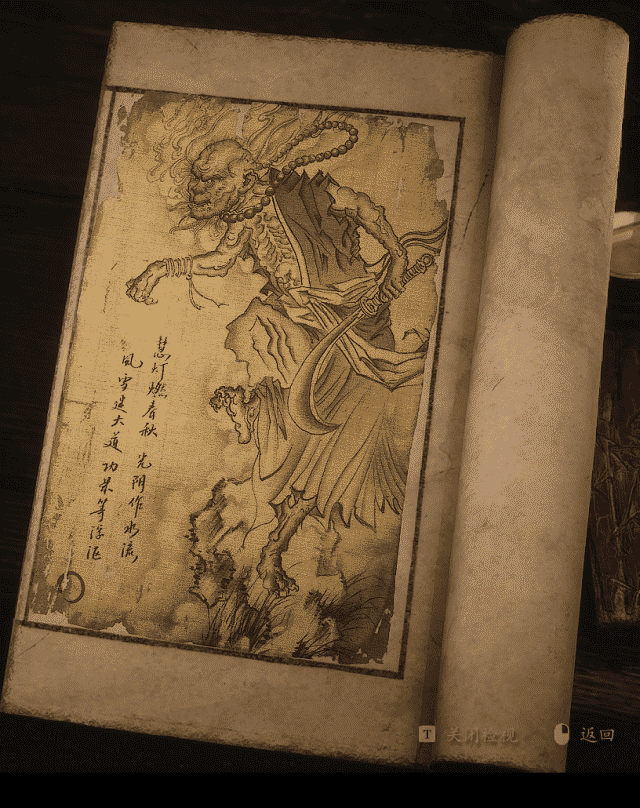 慧灯燃春秋 光阴作水流
风雪迷大道 功果等浮沤
T 关闭检视 返回